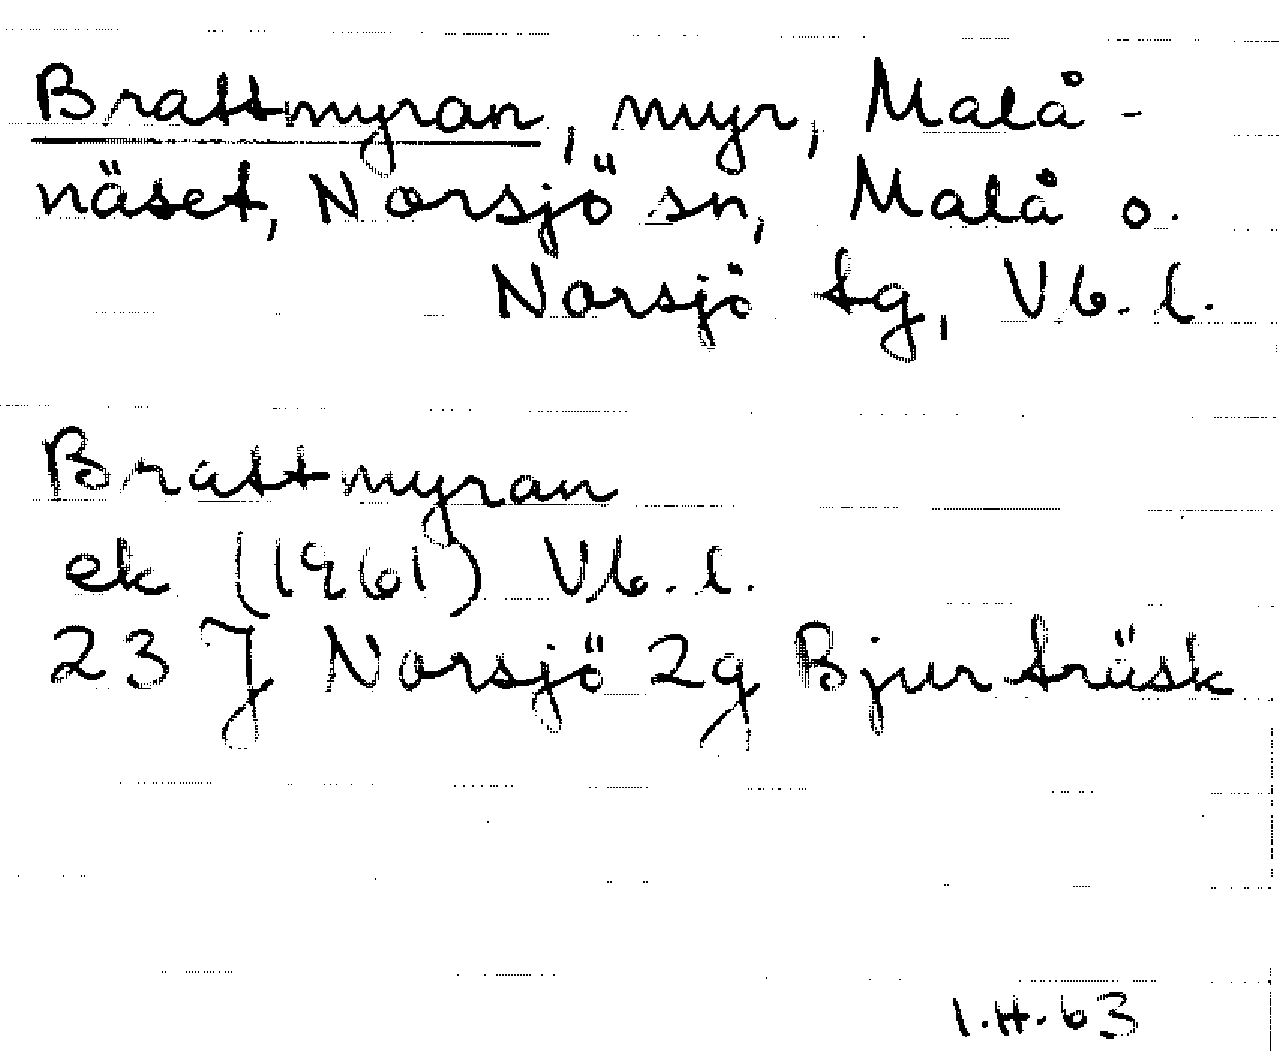 Brattmyran, myr, Malå-
näset, Norsjö sn, Malå o.
Norsjö tg, Vb. l.
Brattmyran
ek (1961) Vb. l.
23 J Norsjö 2g Bjurträsk
I.H. 63